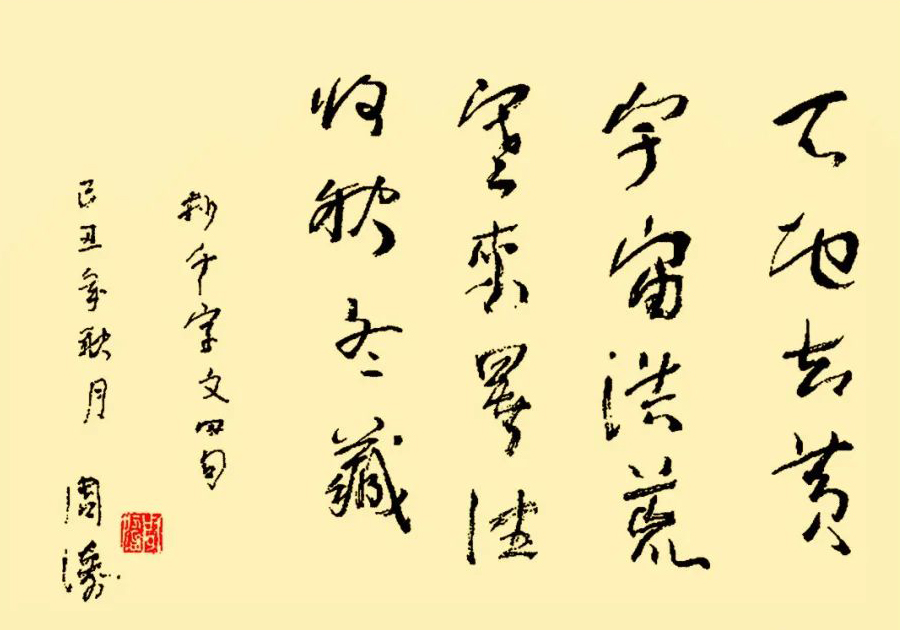 天地玄黄
宇宙洪荒
寒来暑往
收秋冬藏
抄千字文四句
己丑年秋月 周涛